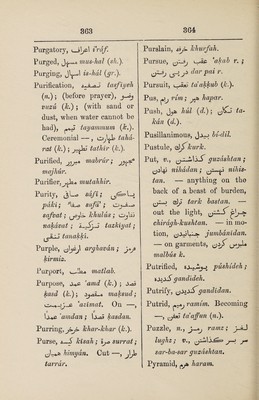 363
364
Purgatory, اعراف i'râf.
Purged, مسهل mus-hal (sh.).
Purging, اسهال is-hâl (gr.).
Purification, تصفيه tasfiyeh
(n.); (before prayer), وضو
vuzû (k.); (with sand or
dust, when water cannot be
had), تيمم tayammum (k.).
Ceremonial —, طهارت tahâ-
rat (k.); تطهير tathîr (k.).
Purified, مبرور mabrûr;
mejhûr.
Purifier, مطهر mutahhir.
Purity,
pâkî; صفا safâ;
safvat; خلوص khulûs; نقاوت
naqâvat; تزكيت tazkiyat;
tanaḳḳî.
Purple, ارغوان arghavân; قرمز
ḳirmiz.
Purport, مطلب matlab.
Purpose, عمد 'amd (k.); قصد
ḳasd (k.); مقصود maḳsud;
عزيمت 'azimat. On —,
عمدا 'amdan; قصدا ḳasdan.
Purring, خرخر khar-khar (k.).
Purse, كيسه kîsah; صره surrat;
هميان himyân. Cut —, طرار
tarrâr.
Purslain, خرفه khurfah.
Pursue, عقب 'aḳab r.;
در پى dar paî r.
Pursuit, تعقب ta'aḳḳub (k.).
Pus, ريم rîm; هپر hapar.
Push, هول hûl (d.); تكان ta-
kân (d.).
Pusillanimous, بيدل bî-dil.
Pustule, كورك kurk.
Put, v., گذاشتن guzâshtan;
نهادن nihâdan; نشتن nihis-
tan. — anything on the
back of a beast of burden,
ترك بستن tark bastan. —
out the light, چراغ كشتن
chirâgh-kushtan. — in mo-
tion, جنبانيدن jumbânîdan.
— on garments, ملبوس كردن
malbûs k.
Putrified, پوشيده pûshîdeh;
گنديده gandîdeh.
Putrify, گنديدن gandîdan.
Putrid, رميم ramîm. Becoming
—, تعفن ta'affun (n.).
Puzzle, n., رمز ramz; لغز
lughz; v., سر بسر گذاشتن
sar-ba-sar guzâshtan.
Pyramid, هرم haram.